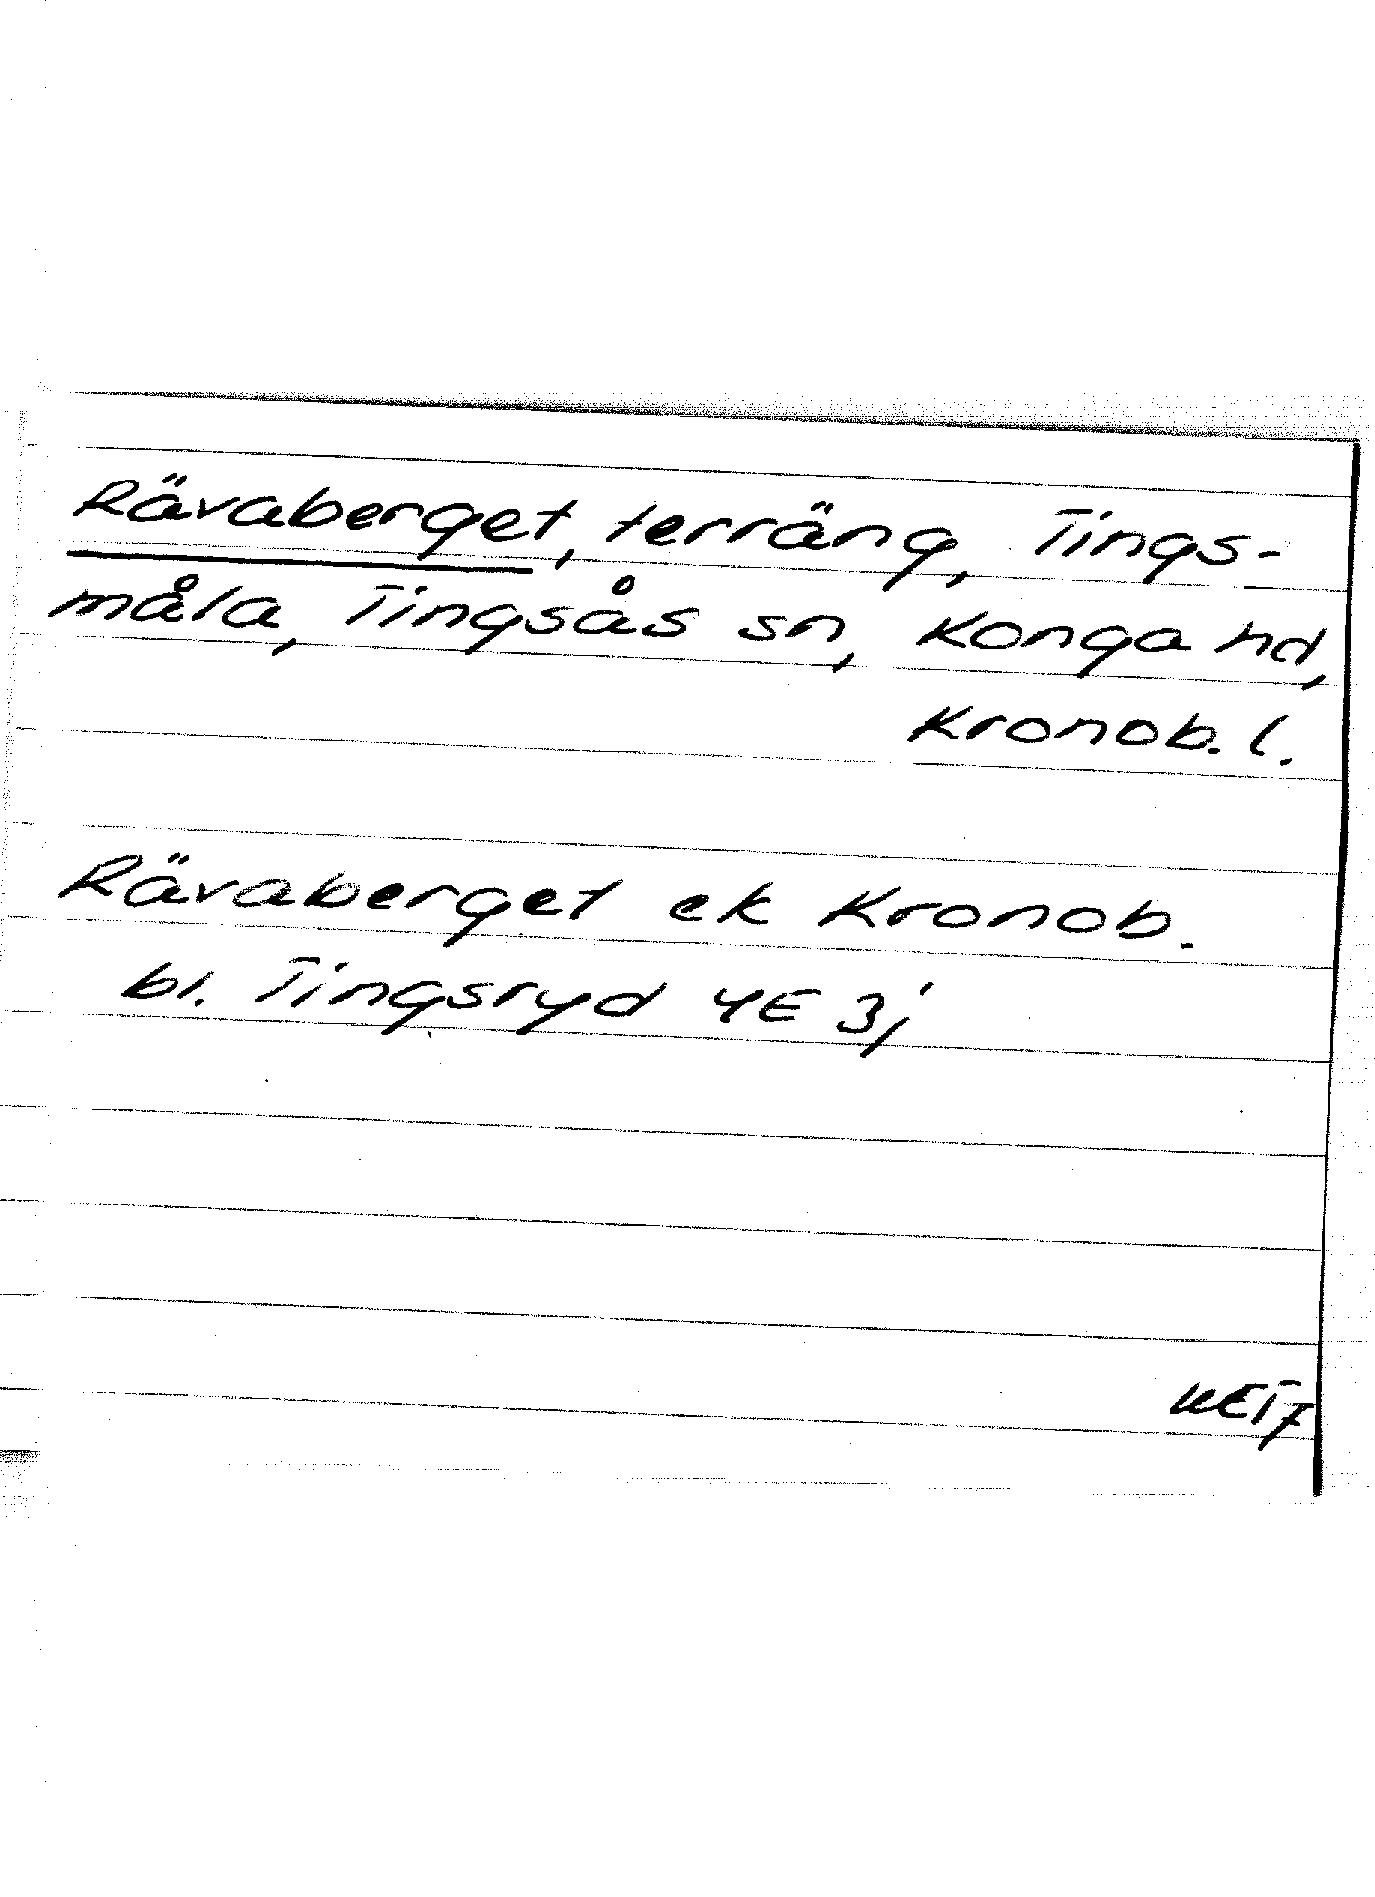 Rävaberget, terräng, Tings-
måla, Tingsås sn, Konga hd,
Kronob. l.
Rävaberget ek Kronob.
bl. Tingsryd 4E 3j